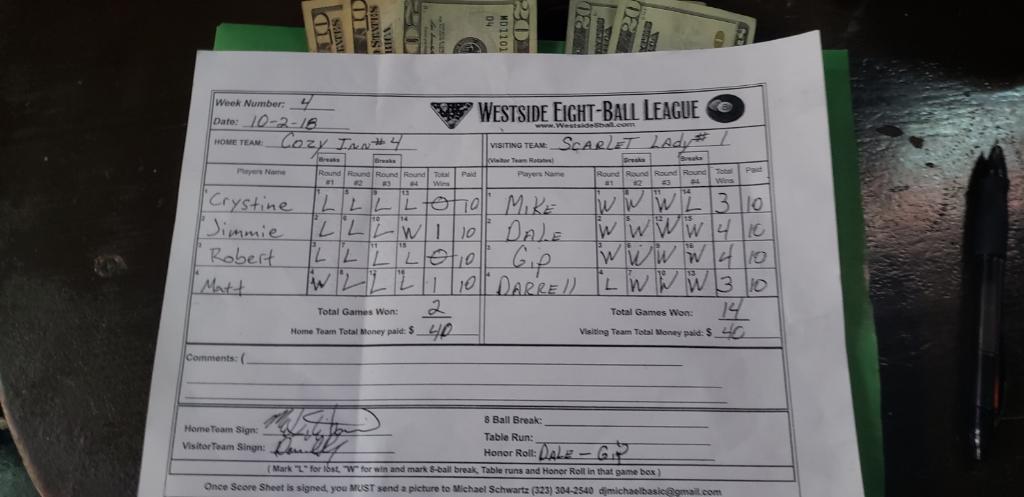 10 STATES 10 STATES 20 20 20
Week Number: 4
WESTSIDE EIGHT-BALL LEAGUE
www.Westside8ball.com
Date: 10-2-18
HOME TEAM: COZY INN #4 VISITING TEAM: SCARLET LADY #1
Breaks Breaks (Visitor Team Rotates) Breaks Breaks
Players Name Round #1 Round #2 Round #3 Round #4 Total Wins Paid Players Name Round #1 Round #2 Round #3 Round #4 Total Wins Paid
1 Crystine L L L L 0 10 1 MIKE W W W L 3 10
2 Jimmie L L L W 1 10 2 DALE W W W W 4 10
3 Robert L L L L 0 10 3 Gip W W W W 4 10
4 Matt W L L L 1 10 4 DARRELL L W W W 3 10
Total Games Won: 2 Total Games Won: 14
Home Team Total Money paid: $ 40 Visiting Team Total Money paid: $ 40
Comments: (
HomeTeam Sign: 8 Ball Break:
VisitorTeam Singn: Table Run:
Honor Roll: DALE - Gip
( Mark "L" for lost, "W" for win and mark 8-ball break, Table runs and Honor Roll in that game box )
Once Score Sheet is signed, you MUST send a picture to Michael Schwartz (323) 304-2540 djmichaelbasic@gmail.com